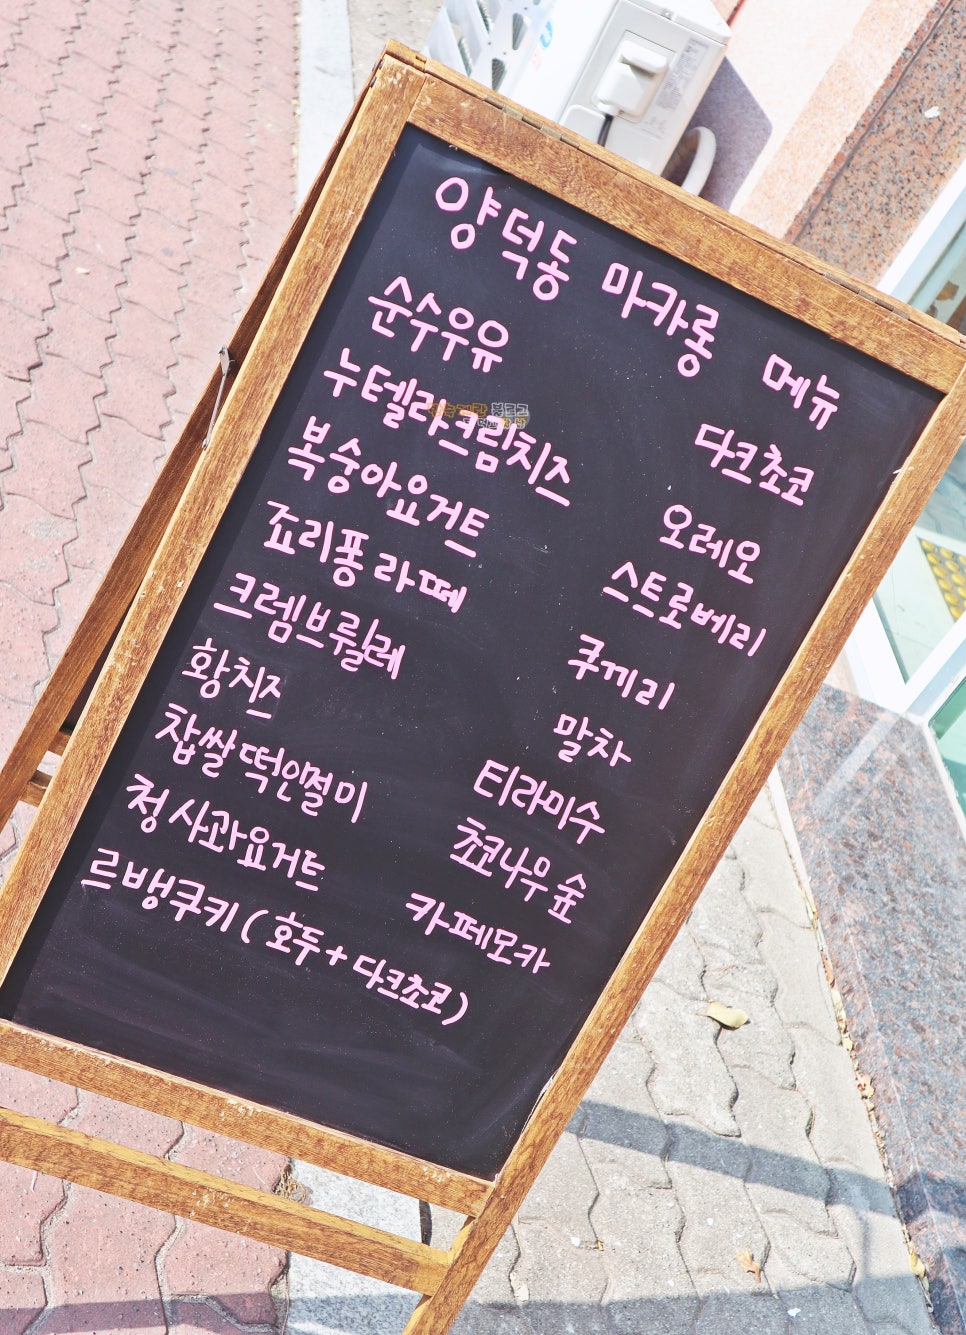 양덕동 마카롱 메뉴
순수우유 다크쵸코
누텔라크림치즈 오레오
복숭아요거트 스트로베리
죠리퐁라떼 쿠끼리
크렘브륄레 말차
황치즈 티라미수
찹쌀떡인절미 쵸코나무숲
청사과요거트 카페모카
르뱅쿠키 (호두+다크쵸코)